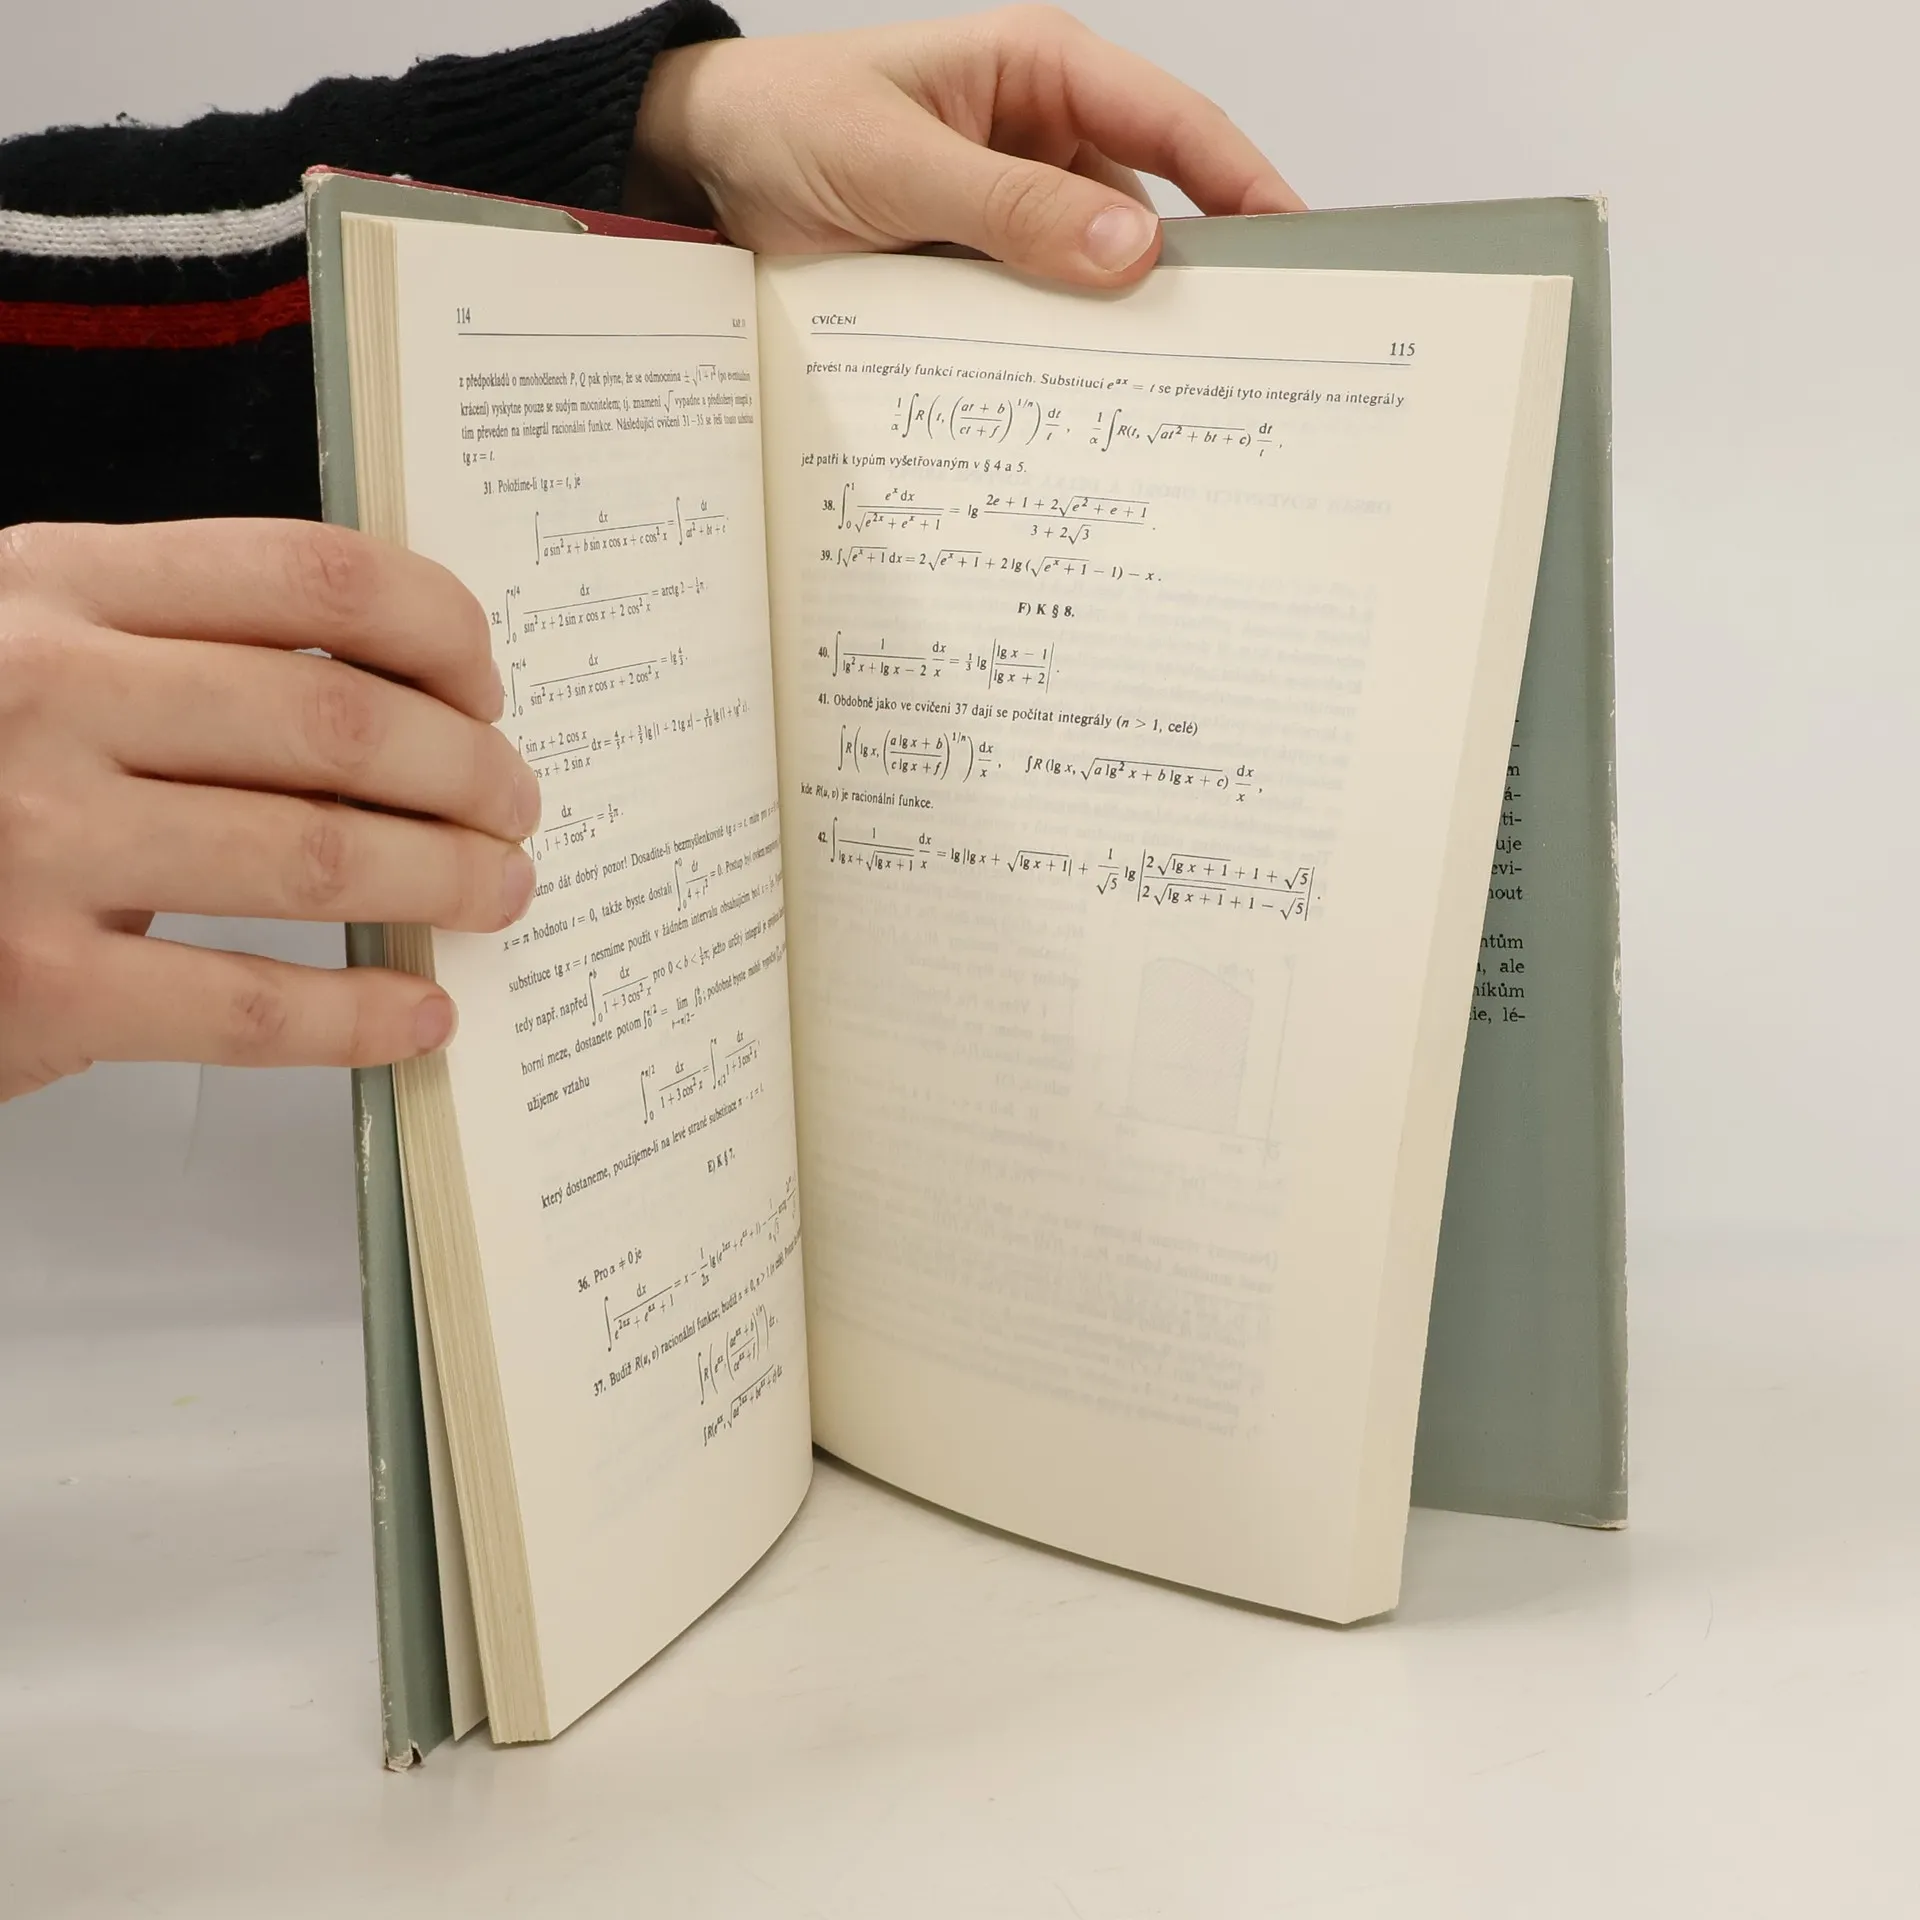 114
KAP. IV
z předpokladů o mnohočlenech P, Q pak plyne, že se odmocnina ± √(1 + t²) (po eventuálním
krácení) vyskytne pouze se sudým mocnitelem; tj. znamení √ vypadne a předložený integrál je
tím převeden na integrál racionální funkce. Následující cvičení 31–35 se řeší touto substitucí
tg x = t.
31. Položíme-li tg x = t, je
∫ dx / (a sin² x + b sin x cos x + c cos² x) = ∫ dt / (at² + bt + c).
32. ∫₀^{π/4} dx / (sin² x + 2 sin x cos x + 2 cos² x) = arctg 2 − ¼π.
∫₀^{π/4} dx / (sin² x + 3 sin x cos x + 2 cos² x) = lg 4/3.
∫ (sin x + 2 cos x) / (cos x + 2 sin x) dx = 4/5 x + 3/5 lg |1 + 2 tg x| − 3/10 lg (1 + tg² x).
dx / (1 + 3 cos² x) = ½π.
utno dát dobrý pozor! Dosadíte-li bezmyšlenkovitě tg x = t, máte pro
x = π hodnotu t = 0, takže byste dostali ∫₀⁰ dt / (4 + t²) = 0. Postup byl ovšem
substituce tg x = t nesmíme použít v žádném intervalu obsahujícím bod x = ½π.
tedy např. napřed ∫₀^b dx / (1 + 3 cos² x) pro 0 < b < ½π; ježto určitý integrál je
horní meze, dostanete potom ∫₀^{π/2} = lim_{b→π/2−} ∫₀^b; podobně byste mohli
užijeme vztahu
∫₀^{π/2} dx / (1 + 3 cos² x) = ∫_{π/2}^{π} dx / (1 + 3 cos² x),
který dostaneme, použijeme-li na levé straně substituce π − x = t.
E) K § 7.
36. Pro α ≠ 0 je
∫ dx / (e^{2αx} + e^{αx} + 1) = x − 1/(2α) lg (e^{2αx} + e^{αx} + 1) −
37. Budiž R(u, v) racionální funkce; budiž α ≠ 0, n > 1 (n celé).
∫ R(e^{αx}, ((ae^{αx} + b) / (ce^{αx} + f))^{1/n}) dx,
∫ R(e^{αx}, √(ae^{2αx} + be^{αx} + c)) dx
CVIČENÍ
115
převést na integrály funkcí racionálních. Substitucí e^{αx} = t se převádějí tyto integrály na integrály
1/α ∫ R(t, ((at + b) / (ct + f))^{1/n}) dt/t, 1/α ∫ R(t, √(at² + bt + c)) dt/t,
jež patří k typům vyšetřovaným v § 4 a 5.
38. ∫₀¹ e^x dx / √(e^{2x} + e^x + 1) = lg (2e + 1 + 2√(e² + e + 1)) / (3 + 2√3).
39. ∫√(e^x + 1) dx = 2√(e^x + 1) + 2 lg (√(e^x + 1) − 1) − x.
F) K § 8.
40. ∫ 1 / (lg² x + lg x − 2) dx/x = ⅓ lg |(lg x − 1) / (lg x + 2)|.
41. Obdobně jako ve cvičení 37 dají se počítat integrály (n > 1, celé)
∫ R(lg x, ((a lg x + b) / (c lg x + f))^{1/n}) dx/x, ∫ R (lg x, √(a lg² x + b lg x + c)) dx/x,
kde R(u, v) je racionální funkce.
42. ∫ 1 / (lg x + √(lg x + 1)) dx/x = lg |lg x + √(lg x + 1)| + 1/√5 lg |(2 √(lg x + 1) + 1 + √5) / (2 √(lg x + 1) + 1 − √5)|.
m
á-
ti-
uje
cvi-
nout
ntům
, ale
níkům
ie, lé-